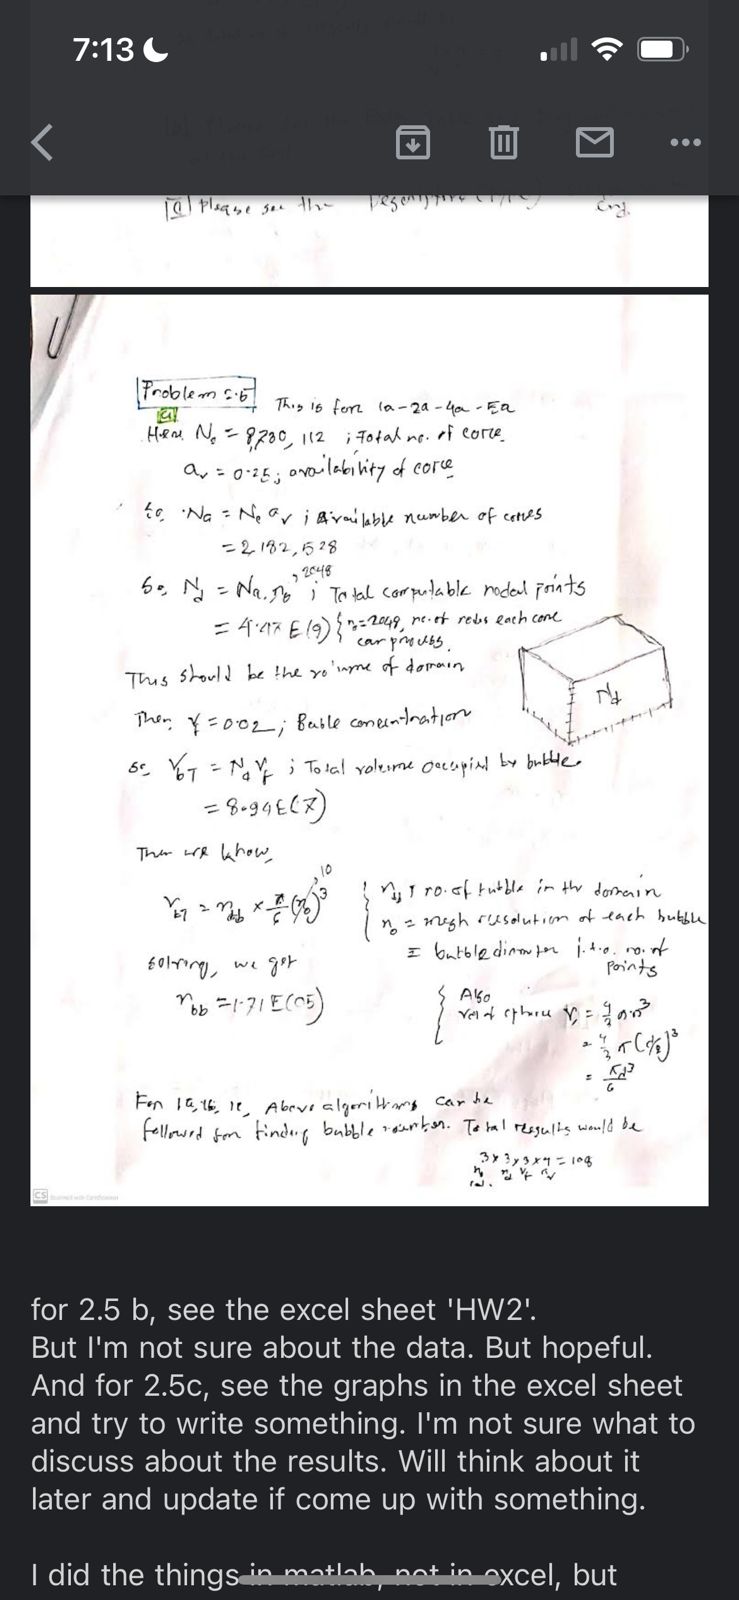 7:13
Please see the
Eng.
Problem 2.5
This is for 1a-2a-4a-5a
a
Here N = 8,730,112 ; Total no. of core
a = 0.25; availability of core
So Na = Nc av ; Available number of cores
= 2182,528
2048
So, Nd = Na.nb ; Total computable nodal points
= 4.47 E(9) { n=2048, no. of each core
can process.
This should be the volume of domain
Nd
Then = 0.02; Buble concentration
So VbT = Nd Vf ; Total volume occupied by bubble.
= 8.94E(7)
Then we know,
10
VbT = nbb × π/6 (nb)³ { no. of bubble in the domain
{ nb = mesh resolution of each bubble
≡ bubble diameter i.t.o. no. of
points
solving, we get
nbb = 1.71 E(05)
{ Also
vol of sphere V = 4/3 πr³
= 4/3 π(d/2)³
= πd³/6
For 1a, 1b, 1c, Above algorithms can be
followed for finding bubble number. Total results would be
3×3×3×4=108
CS Scanned with CamScanner
for 2.5 b, see the excel sheet 'HW2'.
But I'm not sure about the data. But hopeful.
And for 2.5c, see the graphs in the excel sheet
and try to write something. I'm not sure what to
discuss about the results. Will think about it
later and update if come up with something.
I did the things in matlab, not in excel, but